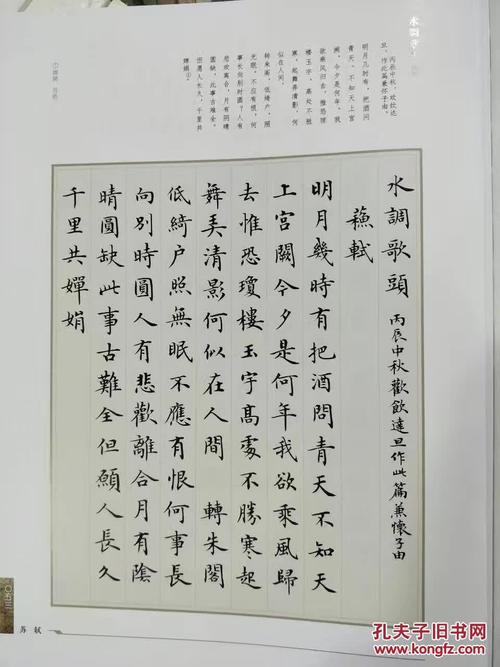 丙辰中秋，欢饮达
旦，作此篇，兼怀子由。
明月几时有，把酒问
青天。不知天上宫
阙，今夕是何年。我
欲乘风归去，惟恐琼
楼玉宇，高处不胜
寒。起舞弄清影，何
似在人间。
转朱阁，低绮户，照
无眠。不应有恨，何
事长向别时圆？人有
悲欢离合，月有阴晴
圆缺，此事古难全。
但愿人长久，千里共
婵娟①。
①婵娟
水調歌頭 丙辰中秋歡飲達旦作此篇兼懷子由
蘓軾
明月幾時有把酒問青天不知天
上宮闕今夕是何年我欲乘風歸
去惟恐瓊樓玉宇高處不勝寒起
舞弄清影何似在人間 轉朱閣
低綺户照無眠不應有恨何事長
向別時圓人有悲歡離合月有陰
晴圓缺此事古難全但願人長久
千里共嬋娟
〇五三
苏轼
孔夫子旧书网
www.kongfz.com